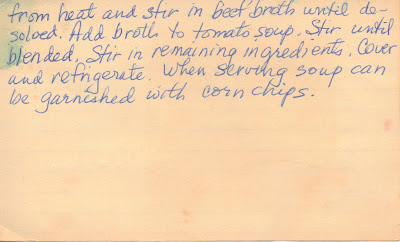 from heat and stir in beef broth until de-
soloed. Add broth to tomato soup. Stir until
blended. Stir in remaining ingredients. Cover
and refrigerate. When serving soup can
be garnished with corn chips.